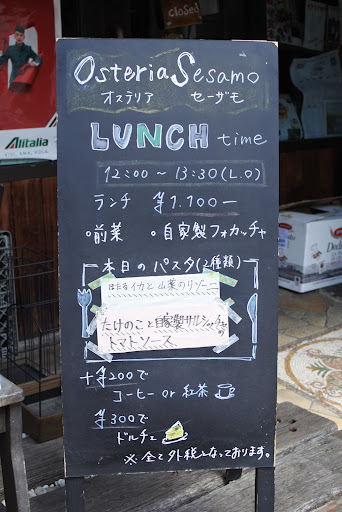 closed
Alitalia
Osteria Sesamo
オステリア セーザモ
LUNCH time
12:00 ~ 13:30 (L.O)
ランチ ¥1.100-
○前菜 ○自家製フォカッチャ
本日のパスタ(2種類)
ほたるイカと山菜のリゾーニ
たけのこと自家製サルシッチャの
トマトソース
+¥200で
コーヒー or 紅茶
¥300で
ドルチェ
※全て外税となっております。